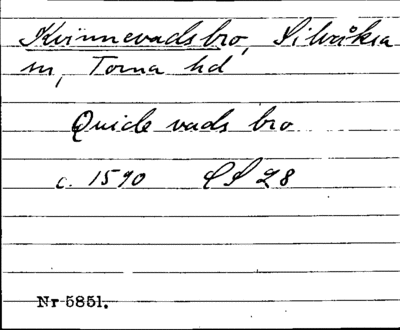 Kvinnevadsbro, Silvåkra
sn, Torna hd
Quide vads bro
c. 1590 LS 28
Nr 5851.